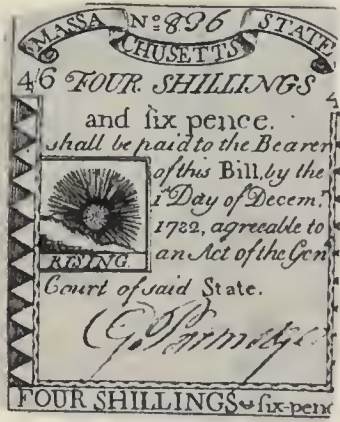 MASSA Nº 836 STATE
CHUSETTS
4/6 FOUR SHILLINGS
and six pence. 4
shall be paid to the Bearer
of this Bill, by the
1st Day of Decem.r
1782, agreeable to
RISING. an Act of the Gen
Court of said State.
FOUR SHILLINGS six-penc